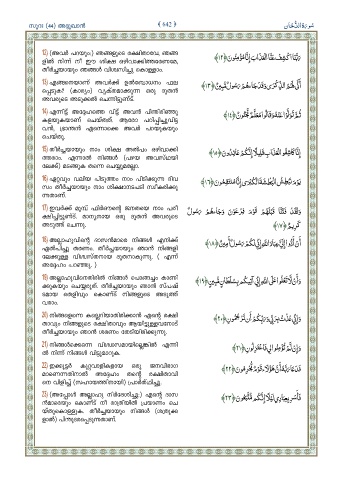 സൂറ (44) അദ്ദുഖാൻ
642
سورة الدخان
12) (അവർ പറയും) ഞങ്ങളുടെ രക്ഷിതാവേ, ഞങ്ങ
ളിൽ നിന്ന് നീ ഈ ശിക്ഷ ഒഴിവാക്കിത്തരേണമേ,
തീർച്ചയായും ഞങ്ങൾ വിശ്വസിച്ചു കൊള്ളാം.
رَبَّنَا اكْشِفْ عَنَّا الْعَذَابَ إِنَّا مُؤْمِنُونَ ﴿١٢﴾
13) എങ്ങനെയാണ് അവർക്ക് ഉൽബോധനം ഫല
പ്പെടുക? (കാര്യം) വ്യക്തമാക്കുന്ന ഒരു ദൂതൻ
അവരുടെ അടുക്കൽ ചെന്നിട്ടുണ്ട്.
أَنَّى لَهُمُ الذِّكْرَى وَقَدْ جَاءَهُمْ رَسُولٌ مُّبِينٌ ﴿١٣﴾
14) എന്നിട്ട് അദ്ദേഹത്തെ വിട്ട് അവർ പിന്തിരിഞ്ഞു
കളയുകയാണ് ചെയ്തത്. ആരോ പഠിപ്പിച്ചുവിട്ട
വൻ, ഭ്രാന്തൻ എന്നൊക്കെ അവർ പറയുകയും
ചെയ്തു.
ثُمَّ تَوَلَّوْا عَنْهُ وَقَالُوا مُعَلَّمٌ مَّجْنُونٌ ﴿١٤﴾
15) തീർച്ചയായും നാം ശിക്ഷ അൽപം ഒഴിവാക്കി
ത്തരാം. എന്നാൽ നിങ്ങൾ (പഴയ അവസ്ഥയി
ലേക്ക്) മടങ്ങുക തന്നെ ചെയ്യുമല്ലോ.
إِنَّا كَاشِفُو الْعَذَابِ قَلِيلًا إِنَّكُمْ عَائِدُونَ ﴿١٥﴾
16) ഏറ്റവും വലിയ പിടുത്തം നാം പിടിക്കുന്ന ദിവ
സം തീർച്ചയായും നാം ശിക്ഷാനടപടി സ്വീകരിക്കു
ന്നതാണ്.
يَوْمَ نَبْطِشُ الْبَطْشَةَ الْكُبْرَى إِنَّا مُنتَقِمُونَ ﴿١٦﴾
17) ഇവർക്ക് മുമ്പ് ഫിർഔന്റെ ജനതയെ നാം പരീ
ക്ഷിച്ചിട്ടുണ്ട്. മാന്യനായ ഒരു ദൂതൻ അവരുടെ
അടുത്ത് ചെന്നു.
وَلَقَدْ فَتَنَّا قَبْلَهُمْ قَوْمَ فِرْعَوْنَ وَجَاءَهُمْ رَسُولٌ
كَرِيمٌ ﴿١٧﴾
18) അല്ലാഹുവിന്റെ ദാസൻമാരെ നിങ്ങൾ എനിക്ക്
ഏൽപിച്ചു തരണം. തീർച്ചയായും ഞാൻ നിങ്ങളി
ലേക്കുള്ള വിശ്വസ്തനായ ദൂതനാകുന്നു. ( എന്ന്
അദ്ദേഹം പറഞ്ഞു. )
أَنْ أَدُّوا إِلَيَّ عِبَادَ اللَّهِ إِنِّي لَكُمْ رَسُولٌ أَمِينٌ ﴿١٨﴾
19) അല്ലാഹുവിനെതിരിൽ നിങ്ങൾ പൊങ്ങച്ചം കാണി
ക്കുകയും ചെയ്യരുത്. തീർച്ചയായും ഞാൻ സ്പഷ്
ടമായ തെളിവും കൊണ്ട് നിങ്ങളുടെ അടുത്ത്
വരാം.
وَأَنْ لَّا تَعْلُوا عَلَى اللَّهِ إِنِّي آتِيكُم بِسُلْطَانٍ مُّبِينٍ ﴿١٩﴾
20) നിങ്ങളെന്നെ കല്ലെറിയാതിരിക്കാൻ എന്റെ രക്ഷി
താവും നിങ്ങളുടെ രക്ഷിതാവും ആയിട്ടുള്ളവനോട്
തീർച്ചയായും ഞാൻ ശരണം തേടിയിരിക്കുന്നു.
وَإِنِّي عُذْتُ بِرَبِّي وَرَبِّكُمْ أَن تَرْجُمُونِ ﴿٢٠﴾
21) നിങ്ങൾക്കെന്നെ വിശ്വാസമായില്ലെങ്കിൽ എന്നി
ൽ നിന്ന് നിങ്ങൾ വിട്ടുമാറുക.
وَإِن لَّمْ تُؤْمِنُوا لِي فَاعْتَزِلُونِ ﴿٢١﴾
22) ഇക്കൂട്ടർ കുറ്റവാളികളായ ഒരു ജനവിഭാഗ
മാണെന്നതിനാൽ അദ്ദേഹം തന്റെ രക്ഷിതാവി
നെ വിളിച്ച് (സഹായത്തിനായി) പ്രാർത്ഥിച്ചു.
فَدَعَا رَبَّهُ أَنَّ هَؤُلَاءِ قَوْمٌ مُّجْرِمُونَ ﴿٢٢﴾
23) (അപ്പോൾ അല്ലാഹു നിർദേശിച്ചു:) എന്റെ ദാസ
ൻമാരെയും കൊണ്ട് നീ രാത്രിയിൽ പ്രയാണം ചെ
യ്തുകൊള്ളുക. തീർച്ചയായും നിങ്ങൾ (ശത്രുക്ക
ളാൽ) പിന്തുടരപ്പെടുന്നതാണ്.
فَأَسْرِ بِعِبَادِي لَيْلًا إِنَّكُم مُّتَّبَعُونَ ﴿٢٣﴾